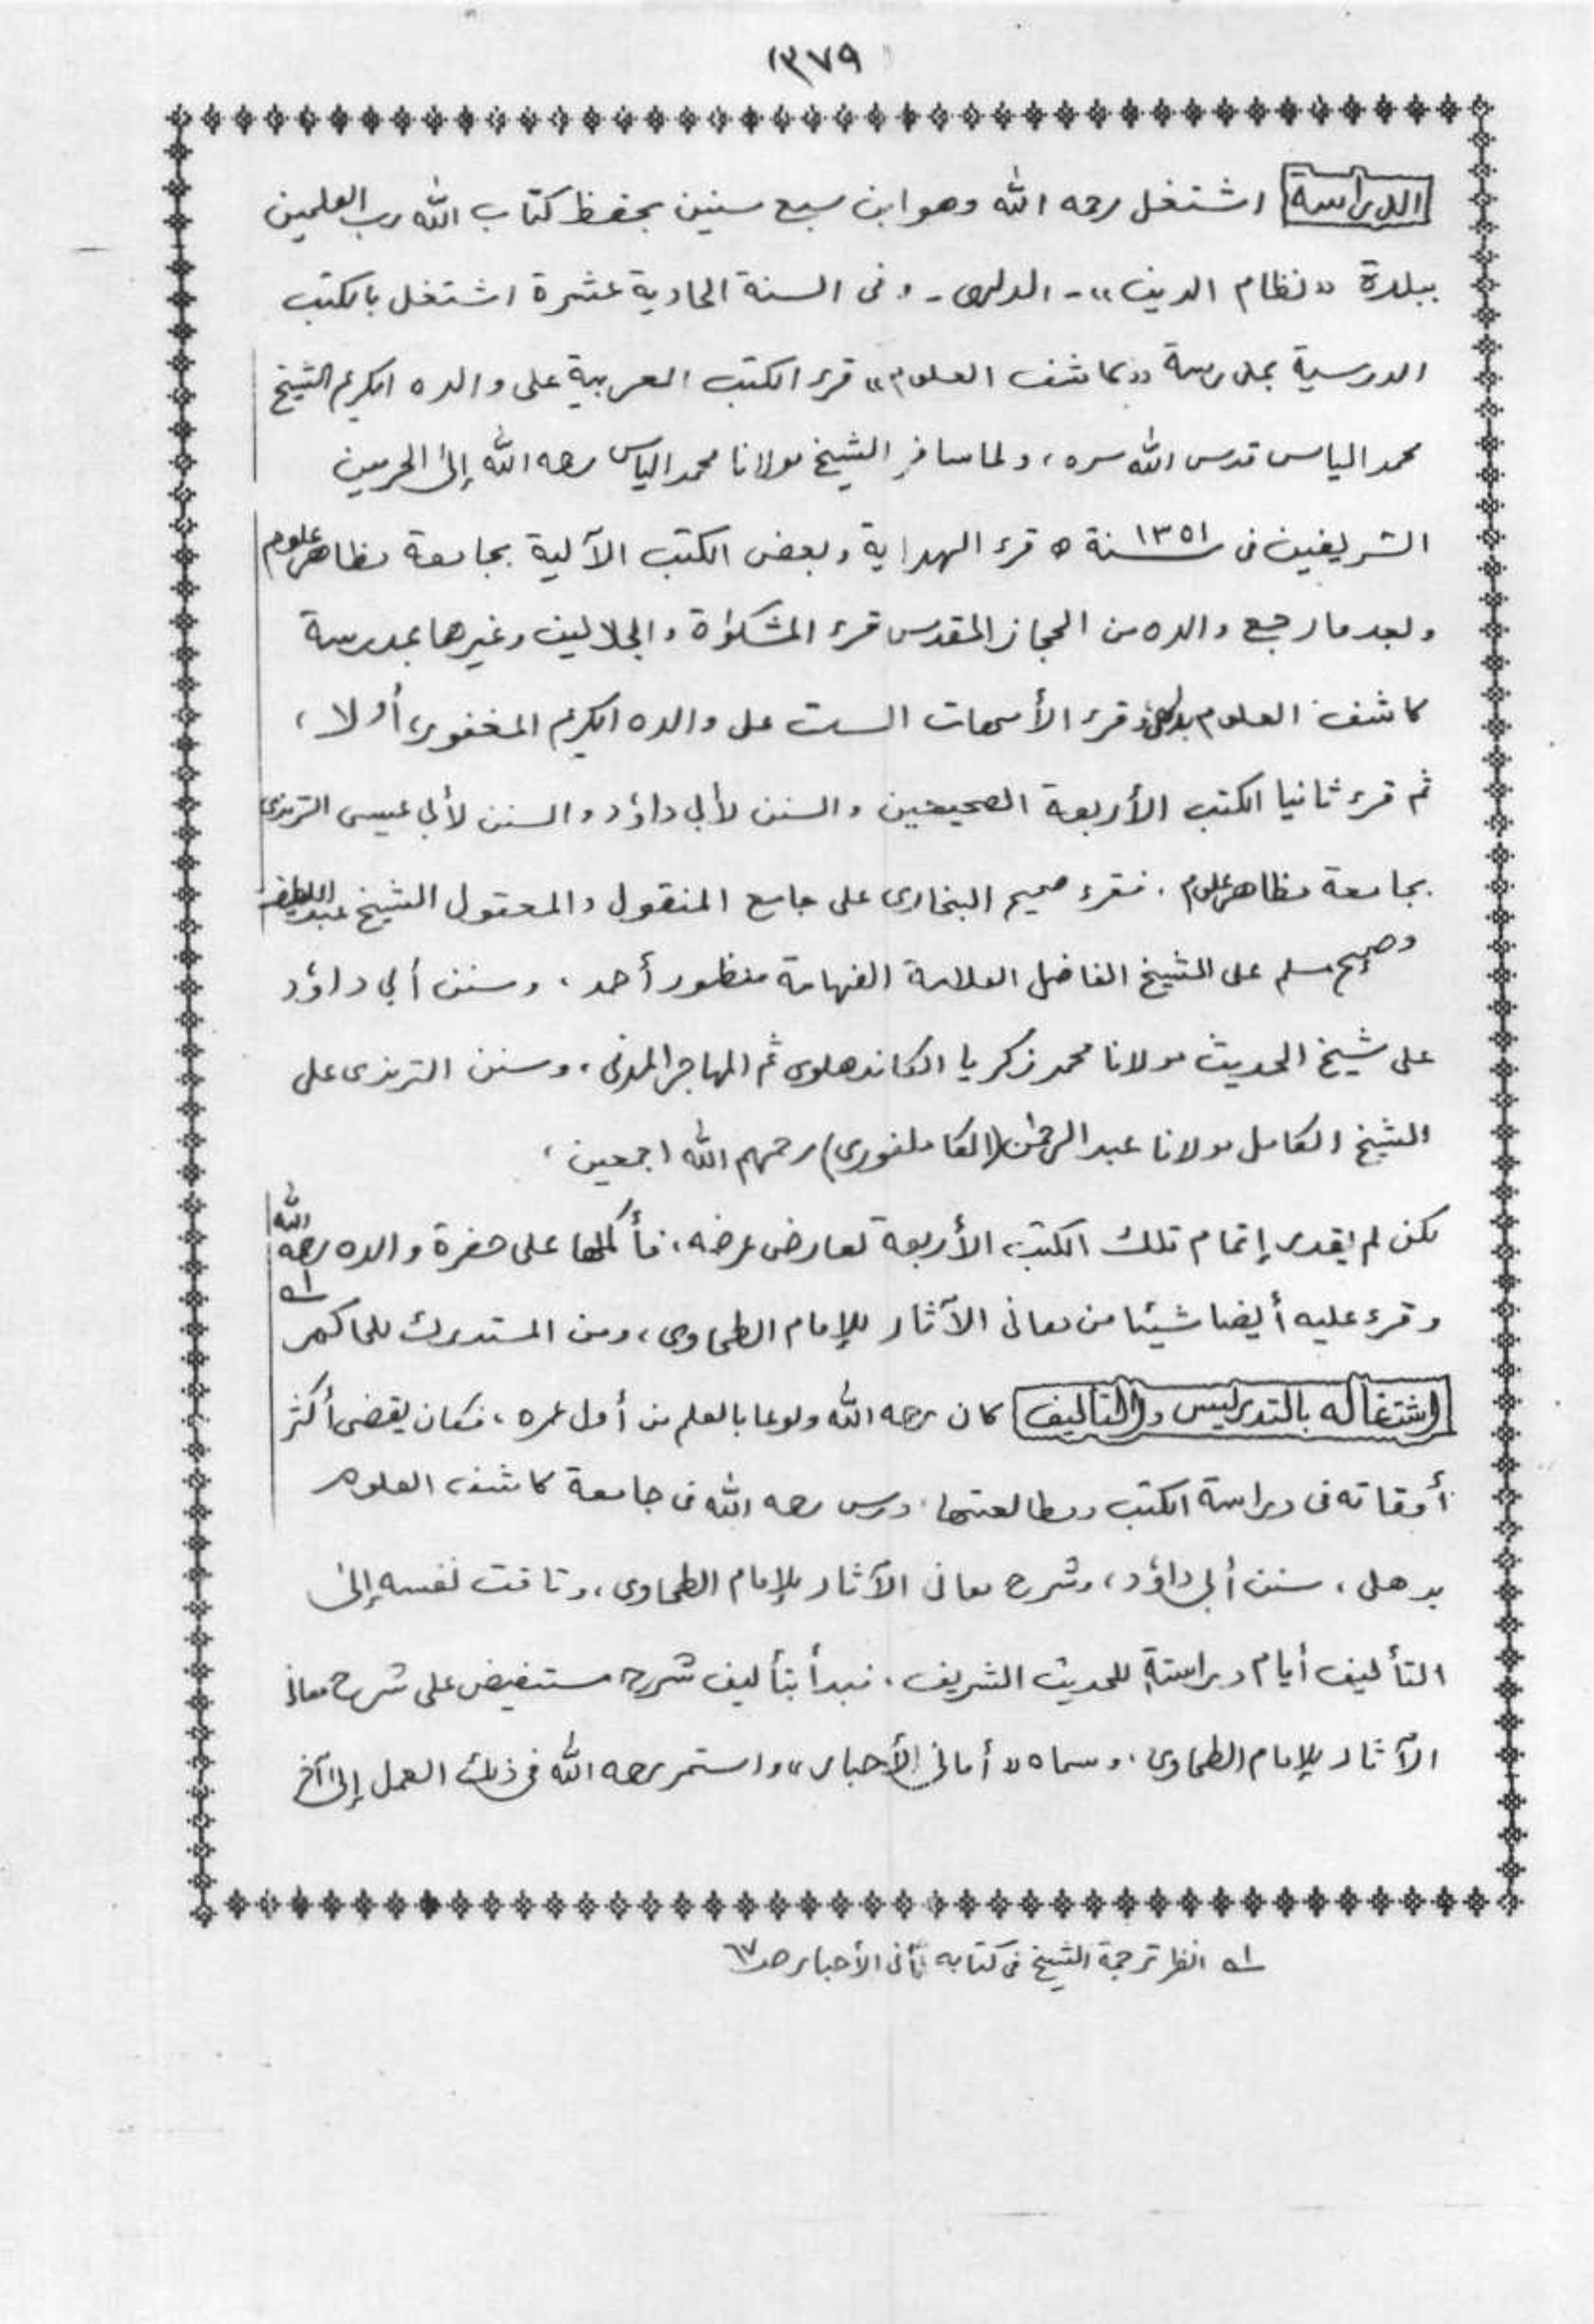 ١٣٧٩
الدراسة اشتغل رحمه الله وهو ابن سبع سنين بحفظ كتاب الله رب العلمين
ببلدة «نظام الدين» - الدلهى - وفى السنة الحادية عشرة اشتغل بالكتب
الدرسية بمدرسة «كاشف العلوم» قرء الكتب العربية على والده الكريم الشيخ
محمد الياس قدس الله سره، ولما سافر الشيخ مولانا محمد الياس رحمه الله إلى الحرمين
الشريفين فى سنة ١٣٥١ ه قرء الهداية وبعض الكتب الآلية بجامعة مظاهر علوم
وبعد ما رجع والده من الحجاز المقدس قرء المشكوٰة والجلالين وغيرها بمدرسة
كاشف العلوم وقرء الأمهات الست على والده الكريم المغفور، أولا،
ثم قرء ثانيا الكتب الأربعة الصحيحين والسنن لأبى داؤد والسنن لأبى عيسى الترمذى
بجامعة مظاهر علوم. فقرء صحيح البخارى على جامع المنقول والمعقول الشيخ عبد اللطيف
وصحيح مسلم على الشيخ الفاضل العلامة الفهامة منظور أحمد، وسنن أبي داؤد
على شيخ الحديث مولانا محمد زكريا الكاندهلوى ثم المهاجر المدنى، وسنن الترمذى على
الشيخ الكامل مولانا عبد الرحمٰن (الكاملفورى) رحمهم الله اجمعين،
لكن لم يقدر إتمام تلك الكتب الأربعة لعارض مرضه، فأكملها على حضرة والده رحمه الله
وقرء عليه أيضا شيئا من معانى الآثار للإمام الطحاوى، ومن المستدرك للحاكم ١ه
اشتغاله بالتدريس والتاليف كان رحمه الله ولوعا بالعلم من أول عمره، فكان يقضى أكثر
أوقاته فى دراسة الكتب ومطالعتها، درس رحمه الله فى جامعة كاشف العلوم
بدهلى، سنن أبى داؤد، وشرح معانى الآثار للإمام الطحاوى، وتاقت نفسه إلى
التأليف أيام دراسته للحديث الشريف. فبدأ بتأليف شرح مستفيض على شرح معانى
الآثار للإمام الطحاوى، وسماه «أمانى الأحبار» واستمر رحمه الله فى ذلك العمل إلى آخر
١ه انظر ترجمة الشيخ فى كتابه أمانى الأحبار صـ٦٧